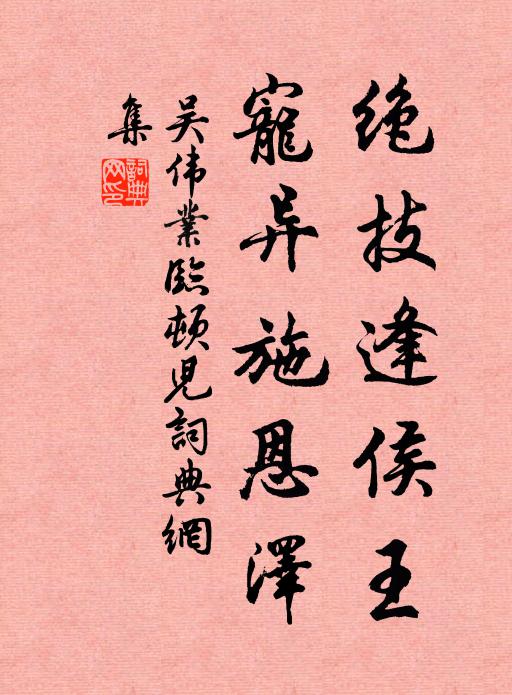 绝技逢侯王
寵异施恩澤
吴伟業臨頓児詞典網
集
詞典网印